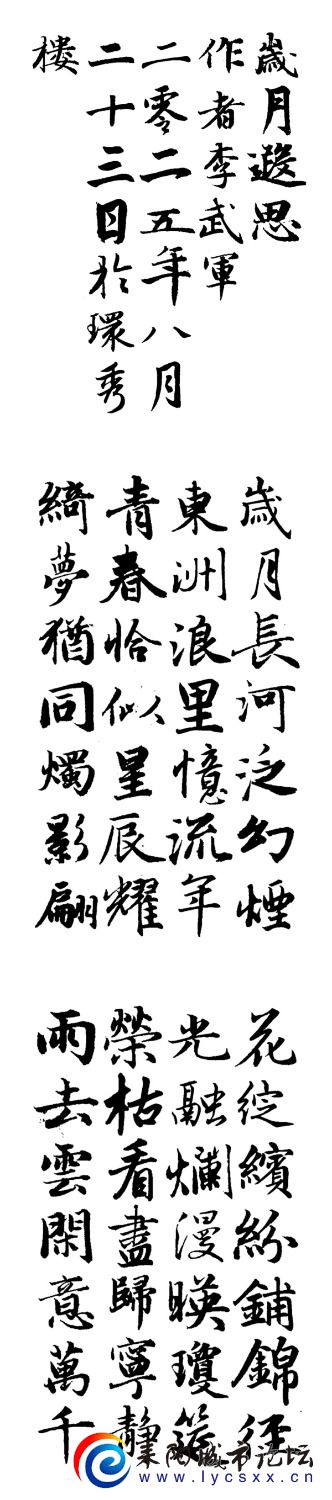 歲月遐思
作者李武軍
二零二五年八月
二十三日於環秀
樓
歲月長河泛幻煙
東洲浪里憶流年
青春恰似星辰耀
綺夢猶同燭影翩
花綻繽紛鋪錦徑
光融爛漫暎瓊筵
榮枯看盡歸寧靜
雨去雲閑意萬千
耒阳城市论坛
www.lycsxx.cn